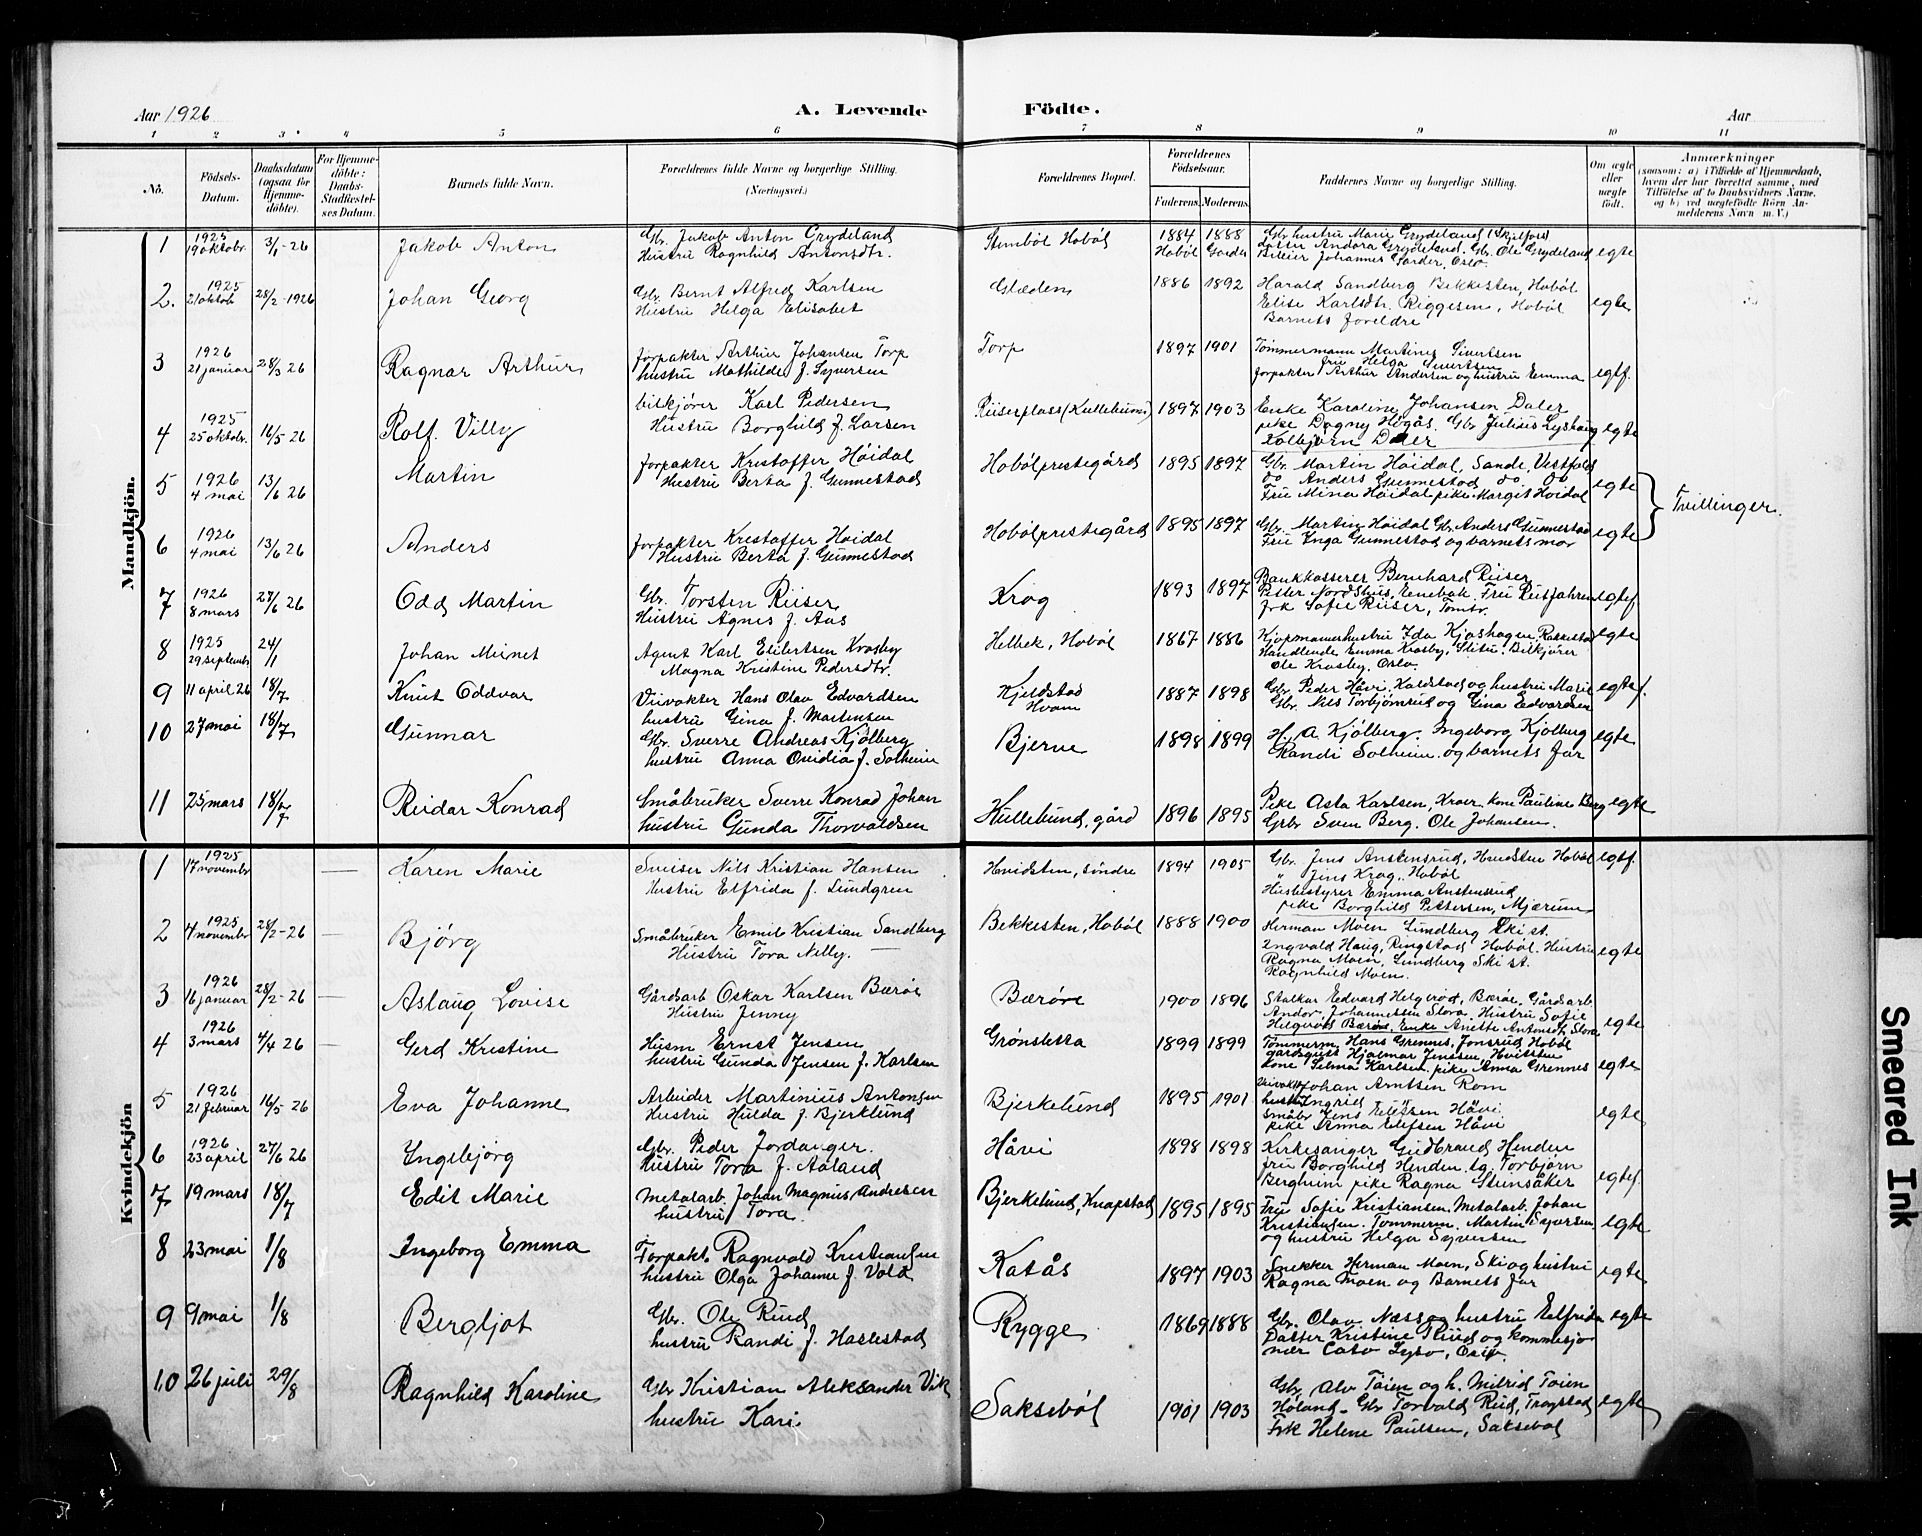 Aar 1926
A. Levende Födte.
Aar
1 2 3 4 5 6 7 8 9 10 11
No.
Födsels-Datum.
Daabsdatum (ogsaa for Hjemme-döbte).
For Hjemme-döbte: Daabs-Stadfæstel-ses Datum.
Barnets fulde Navn.
Forældrenes fulde Navne og borgerlige Stilling. (Næringsvei.)
Forældrenes Bopæl.
Forældrenes Födselsaar.
Faderens. Moderens.
Faddernes Navne og borgerlige Stilling.
Om ægte eller uægte födt.
Anmærkninger
(saasom: a) i Tilfælde af Hjemmedaab, hvem der har forrettet samme, med Tilföielse af to Daabsvidners Navne, og b) ved uægtefödte Börn An-melderens Navn m. V.)
Mandkjön.
1 1925 19 oktobr. 3/1-26 Jakob Anton Gbr. Jakob Anton Grydeland Hustru Ragnhild Antonsdtr. Stenbøl Hobøl 1884 Hobøl 1888 Garder Gbr. hustru Marie Grydeland (Skjelfos) Datter Andora Grydeland, Gbr. Ole Grydeland Bileier Johannes Garder, Oslo. egte
2. 1925 21 oktob 28/2-1926 Johan Georg Gbr. Bernt Alfred Karlsen Hustru Helga Elisabet Glæden 1886 1892 Harald Sandberg Bekkesten, Hobøl Elise Karlsdtr. Riggesen, Hobøl Barnets foreldre egte
3 1926 21 januar 28/3 26 Ragnar Arthur forpakter Arthur Johansen Torp hustru Mathilde f. Syversen Torp 1897 1901 Tømmermann Martines Sivertsen fru Helga Sivertsen forpakter Arthur Andersen og hustru Emma egtf.
4 1925 25 oktobr. 16/5 26 Rolf Villy bilkjører Karl Pedersen Hustru Borghild f. Larsen Riiserplass (Kullebund) 1897 1903 Enke Karoline Johansen Daler pike Dagny Høgås. Gbr Julius Lyshaug Kolbjørn Daler egte
5 1926 4 mai 13/6 26 Martin forpakter Kristoffer Høidal Hustru Berta f. Gunnestad Hobølprestegård 1895 1897 Gbr. Martin Høidal, Sande, Vestfold do Anders Gunnestad do. do Fru Mina Høidal pike Margit Høidal egte
Tvillinger.
6 1926 4 mai 13/6 26 Anders forpakter Krestoffer Høidal Hustru Berta f. Gunnestad Hobølprestegård 1895 1897 Gbr. Martin Høidal Gbr. Anders Gunnestad Fru Inga Gunnestad og barnets mor egte
7 1926 8 mars 27/6 26 Odd Martin Gbr. Torsten Riiser Hustru Agnes f. Aas Krog 1893 1897 Bankkasserer Bernhard Riiser Petter Nordshus, Enebak. Fru frk Sofie Riiser, Tomtr. egtef
8 1925 29 septembr 24/1 Johan Meinet Agent Karl Eilertsen Krosby Magna Kristine Pedersdtr. Helbek, Hobøl 1867 1886 Kjøpmannhustru Ida Kjoshagen, Rakkestad Handlende Emma Krosby, Slitu. Bilkjører Ole Krosby, Oslo. egte
9 11 april 26 18/7 Knut Oddvar Veivokter Hans Olav Edvardsen hustru Gina f. Martinsen Kjeldstad Hvam 1887 1898 Gbr. Peder Håvi, Kaldstad og hustru Marie Gbr. Nils Torbjørnrud og Gina Edvardsen egtef.
10 27 mai 18/7 Gunnar Gbr. Sverre Andreas Kjølberg hustru Anna Ovidia f. Solheim Bjerne 1898 1899 H. A. Kjølberg. Ingeborg Kjølberg Randi Solheim. og barnets far egte
11 25 mars 18/7 Reidar Konrad Småbruker Sverre Konrad Johan hustru Gunda Thorvaldsen Kullebund, gård 1896 1895 Pike Asta Karlsen, Kroer. Kone Pauline Berg Grbr Sven Berg. Ole Johansen. egte
Kvindekjön
1 1925 17 novembr — Karen Marie Sveiser Nils Kristian Hansen Hustru Elfrida f. Lundgren Hvidsten, søndre 1894 1905 Gbr. Jens Anstensrud, Hvidsten Hobøl " Jens Krog, Hobøl Husbestyrer Emma Anstensrud pike Borghild Pettersen, Mjærum egtf.
2 1925 4 novembr 28/2-26 — Bjørg Småbruker Emil Kristian Sandberg Hustru Tora Nilly. — Bekkesten, Hobøl 1888 1900 Herman Moen Lundberg Ski st. Ingvald Haug, Ringstad Hobøl. Hustru Ragna Moen, Lundberg Ski st. Ragnhild Moen. egte
3 1926 16 januar 28/2-26 — Aslaug Lovise Gårdsarb Oskar Karlsen Bærøe Hustru Jenny Bærøe 1900 1896 Stalkar Edvard Helgerød, Bærøe. Gårdsarb Andor Johannessen Slora, Hustru Sofie Helgerød Bærøe, Enke Anette Antonsdt. Slora egte
4 1926 3 mars 4/4 26 — Gerd Kristine Husm Ernst Jensen hustru Gunda Jensen f. Karlsen Grønsletta 1899 1899 Tømmerm. Hans Grennes, Jonsrud Hobøl gardsgutt Hjalmar Jenssen, Hvitsten kone Selma Karlsen, pike Anna Grennes egte
5 1926 21 februar 16/5 26 Eva Johanne Arbeider Martinius Antonsen Hustru Hulda f. Bjerklund Bjerkelund 1895 1901 Veivokter Johan Arntsen Rom hustru Ingrid " " Småbr Jens Elefsen Håvi pike Anna Elefsen Håvi egte
6 1926 23 april 27/6 26 Ingebjørg Gbr. Peder Jordanger. Hustru Tora f. Aaland Håvi 1898 1898 Kirkesanger Gudbrand Henden fru Borghild Henden. Torbjørn Bergheim pike Ragna Stensåker egtef.
7 19 mars 18/7 Edit Marie Metalarb. Johan Magnus Andresen hustru Tora. Bjerkelund, Knapstad 1895 1895 Fru Sofie Kristiansen, Metalarb. Johan Kristiansen. Tømmerm. Martin Syversen og hustru Helga Syversen egte
8 23 mai 1/8 Ingeborg Emma Forpakt. Ragnvald Kristiansen hustru Olga Johanne f. Vold Katås 1897 1903 Snekker Herman Moen, Ski og hustru Ragna Moen og Barnets far egte
9 9 mai 1/8 Bergljot Gbr. Ole Ruud hustru Randi f. Haslestad Rygge 1869 1888 Gbr. Olav Næss og hustru Elfrida Datter Kristine Ruud og kommisjonær Cato Lybo, Oslo. egte
10 26 juli 29/8 Ragnhild Karoline Gbr Kristian Aleksander Vik hustru Kari Saksebøl 1901 1903 Gbr. Alv Tøien og h. Milrid Tøien Høland. Gbr Torvald Rud, Trøgstad Frk Helene Paulsen, Saksebøl egte
Smeared Ink